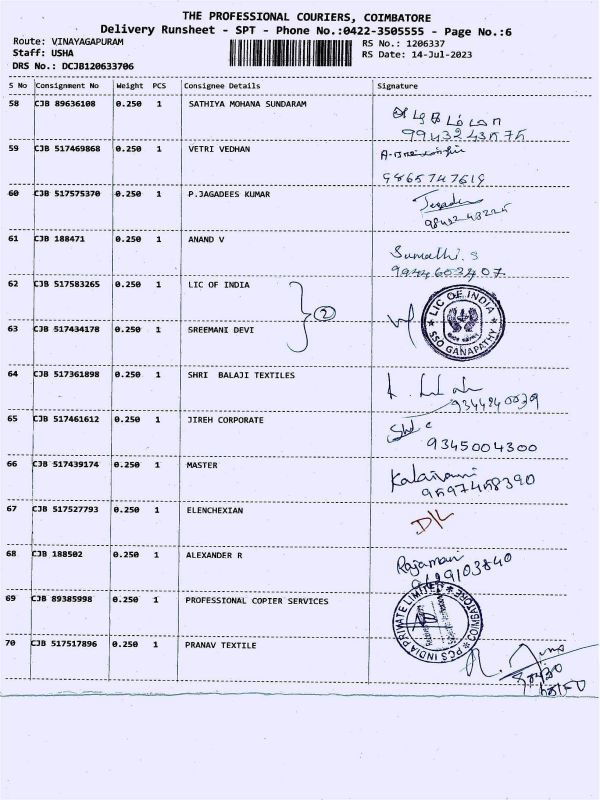 THE PROFESSIONAL COURIERS, COIMBATORE
Delivery Runsheet - SPT - Phone No.:0422-3505555 - Page No.:6
Route: VINAYAGAPURAM
Staff: USHA
DRS No.: DCJB120633706
RS No.: 1206337
RS Date: 14-Jul-2023
S No Consignment No Weight PCS Consignee Details Signature
58 CJB 89636108 0.250 1 SATHIYA MOHANA SUNDARAM
9943243575
59 CJB 517469868 0.250 1 VETRI VEDHAN
9865747619
60 CJB 517575370 0.250 1 P.JAGADEES KUMAR
61 CJB 188471 0.250 1 ANAND V Sumathi. S
9944603407.
62 CJB 517583265 0.250 1 LIC OF INDIA
2
LIC OF INDIA
SSO GANAPATHY
63 CJB 517434178 0.250 1 SREEMANI DEVI
64 CJB 517361898 0.250 1 SHRI BALAJI TEXTILES
65 CJB 517461612 0.250 1 JIREH CORPORATE
9345004300
66 CJB 517439174 0.250 1 MASTER
9597458390
67 CJB 517527793 0.250 1 ELENCHEXIAN D/L
68 CJB 188502 0.250 1 ALEXANDER R
69 CJB 89385998 0.250 1 PROFESSIONAL COPIER SERVICES
PCS INDIA PRIVATE LIMITED COIMBATORE
70 CJB 517517896 0.250 1 PRANAV TEXTILE